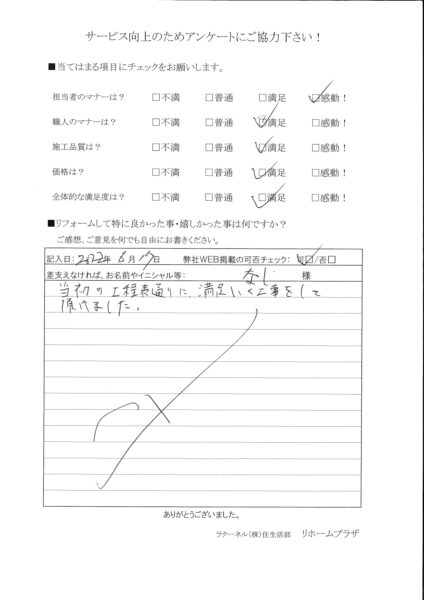 サービス向上のためアンケートにご協力下さい！
■当てはまる項目にチェックをお願いします。
担当者のマナーは？ □不満 □普通 □満足 ☑感動！
職人のマナーは？ □不満 □普通 ☑満足 □感動！
施工品質は？ □不満 □普通 ☑満足 □感動！
価格は？ □不満 □普通 ☑満足 □感動！
全体的な満足度は？ □不満 □普通 ☑満足 □感動！
■リフォームして特に良かった事・嬉しかった事は何ですか？
ご感想、ご意見を何でも自由にお書きください。
記入日： 2022年 8月 日 弊社WEB掲載の可否チェック： 可☑/否□
差支えなければ、お名前やイニシャル等： なし 様
当初の工程表通りに、満足いく工事をして
頂けました。
ありがとうございました。
ラクーネル（株）住生活部 リホームプラザ